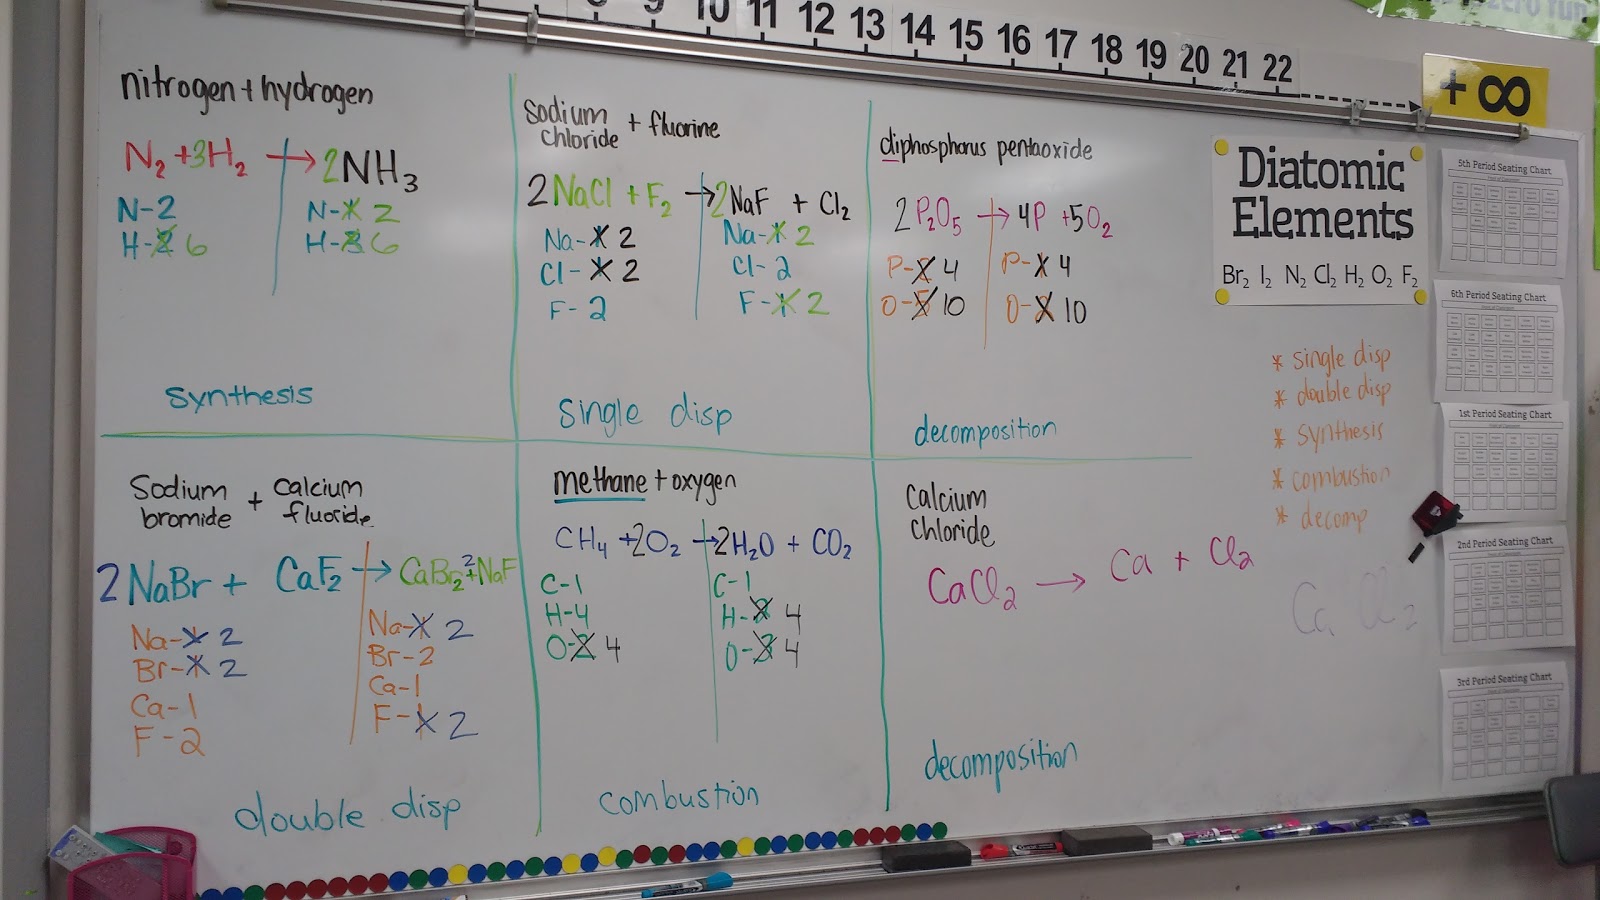 8 9 10 11 12 13 14 15 16 17 18 19 20 21 22
+ ∞
zero fun
nitrogen + hydrogen
N₂ + 3H₂ → 2NH₃
N-2 N-1 2
H-2 6 H-3 6
Synthesis
sodium chloride + fluorine
2NaCl + F₂ → 2NaF + Cl₂
Na-1 2 Na-1 2
Cl-1 2 Cl-2
F-2 F-1 2
Single disp
diphosphorus pentaoxide
2P₂O₅ → 4P + 5O₂
P-2 4 P-1 4
O-5 10 O-2 10
decomposition
Sodium bromide + calcium fluoride
2NaBr + CaF₂ → CaBr₂ + 2NaF
Na-1 2 Na-1 2
Br-1 2 Br-2
Ca-1 Ca-1
F-2 F-1 2
double disp
methane + oxygen
CH₄ + 2O₂ → 2H₂O + CO₂
C-1 C-1
H-4 H-2 4
O-2 4 O-3 4
combustion
Calcium chloride
CaCl₂ → Ca + Cl₂
decomposition
Diatomic
Elements
Br₂ I₂ N₂ Cl₂ H₂ O₂ F₂
* single disp
* double disp
* synthesis
* combustion
* decomp
Ca Cl₂
5th Period Seating Chart
6th Period Seating Chart
1st Period Seating Chart
2nd Period Seating Chart
3rd Period Seating Chart